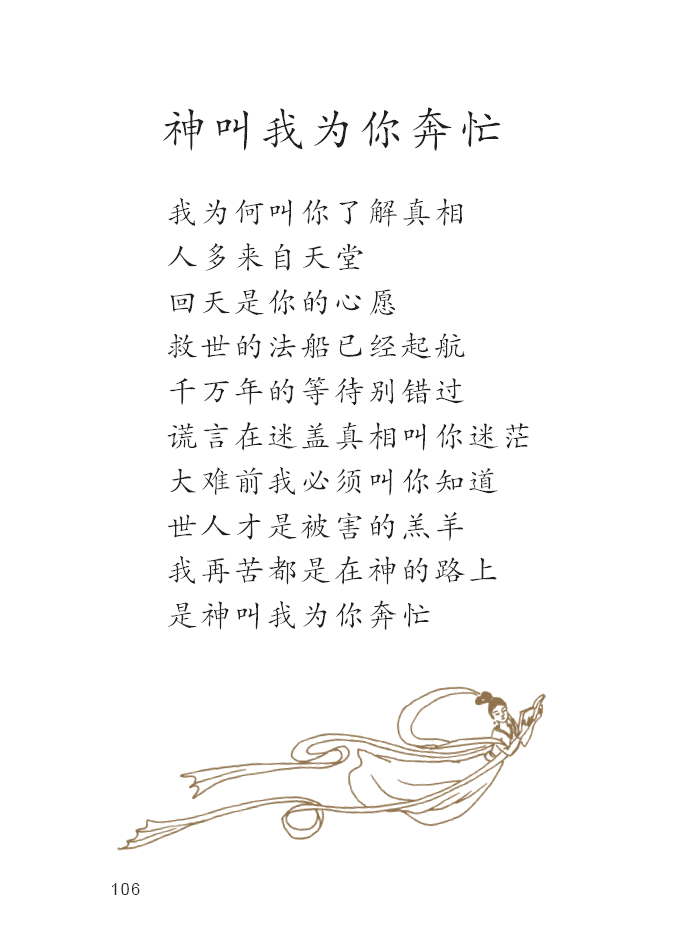 神叫我为你奔忙
我为何叫你了解真相
人多来自天堂
回天是你的心愿
救世的法船已经起航
千万年的等待别错过
谎言在迷盖真相叫你迷茫
大难前我必须叫你知道
世人才是被害的羔羊
我再苦都是在神的路上
是神叫我为你奔忙
106